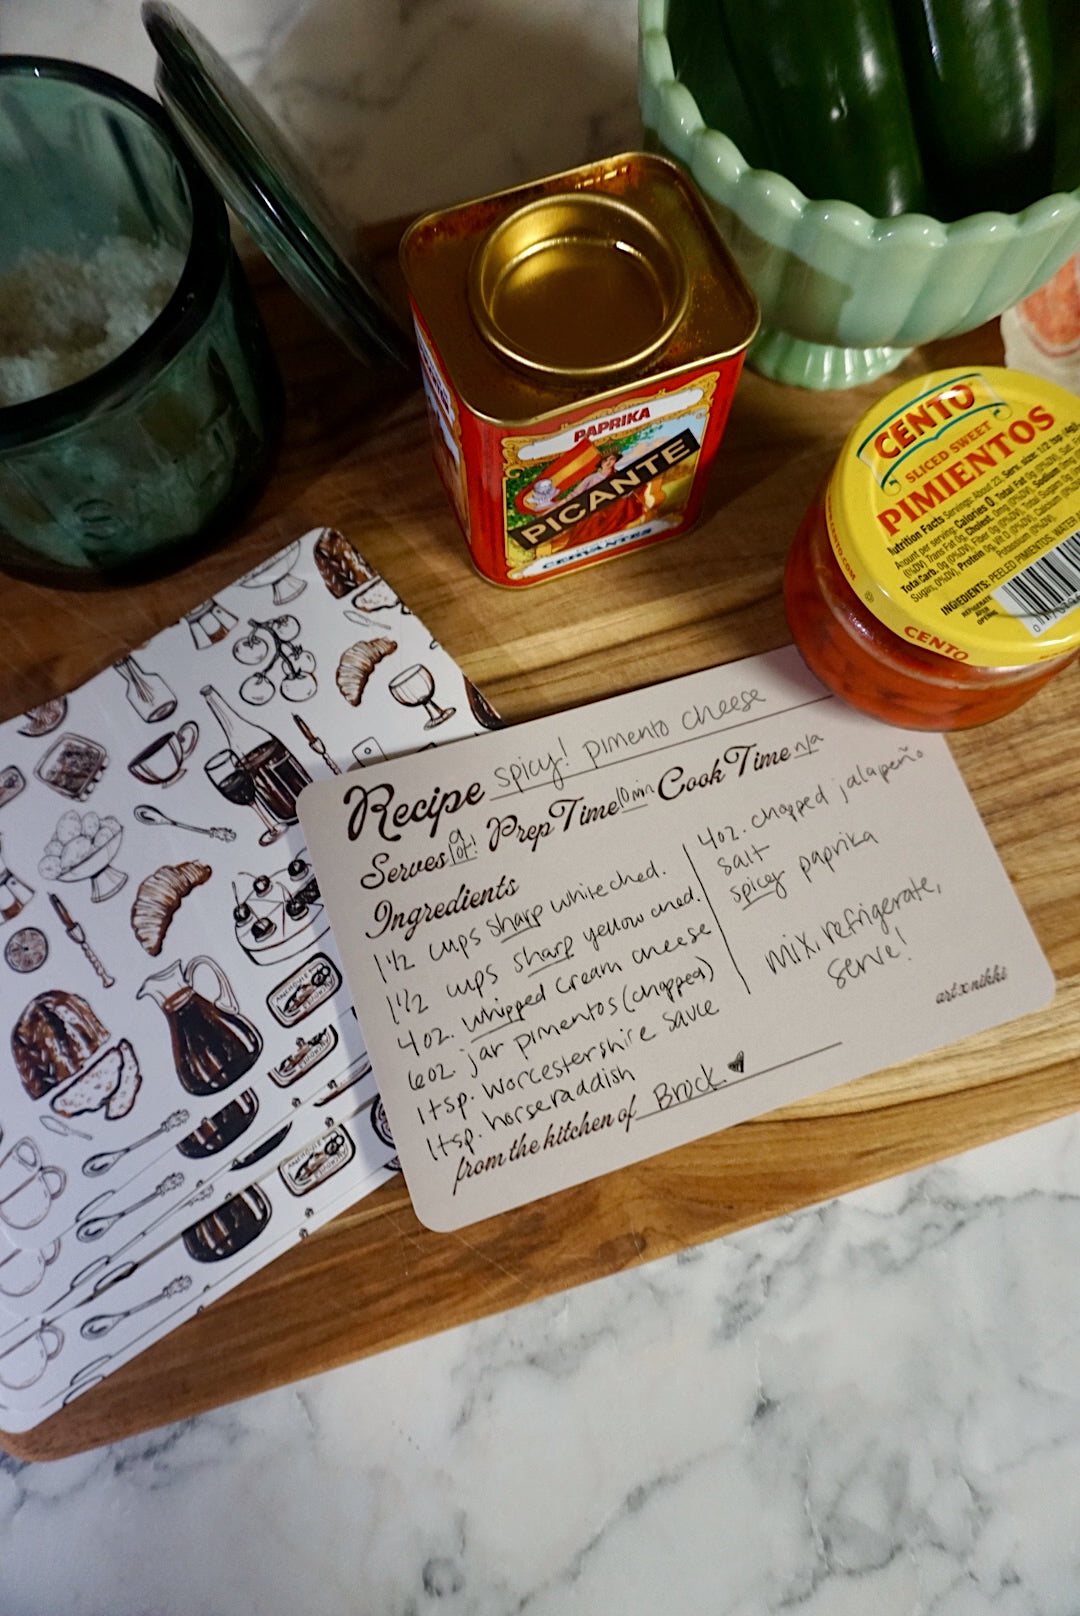 PAPRIKA
PICANTE
CERVANTES
CENTO
SLICED SWEET
PIMIENTOS
Nutrition Facts
Calories 0
Total Fat 0g
Protein 0g
INGREDIENTS: PEELED PIMIENTOS, WATER
REFRIGERATE
AFTER
OPENING
CENTO
Recipe spicy! pimento cheese
Serves a lot! Prep Time 10 min Cook Time n/a
Ingredients
1 1/2 cups sharp white ched.
1 1/2 cups sharp yellow ched.
4oz. whipped cream cheese
6oz. jar pimentos (chopped)
1 tsp. worcestershire sauce
1 tsp. horseraddish
4oz. chopped jalapeño
salt
spicy paprika
mix, refrigerate,
serve!
from the kitchen of Brock. ♥
art x nikki